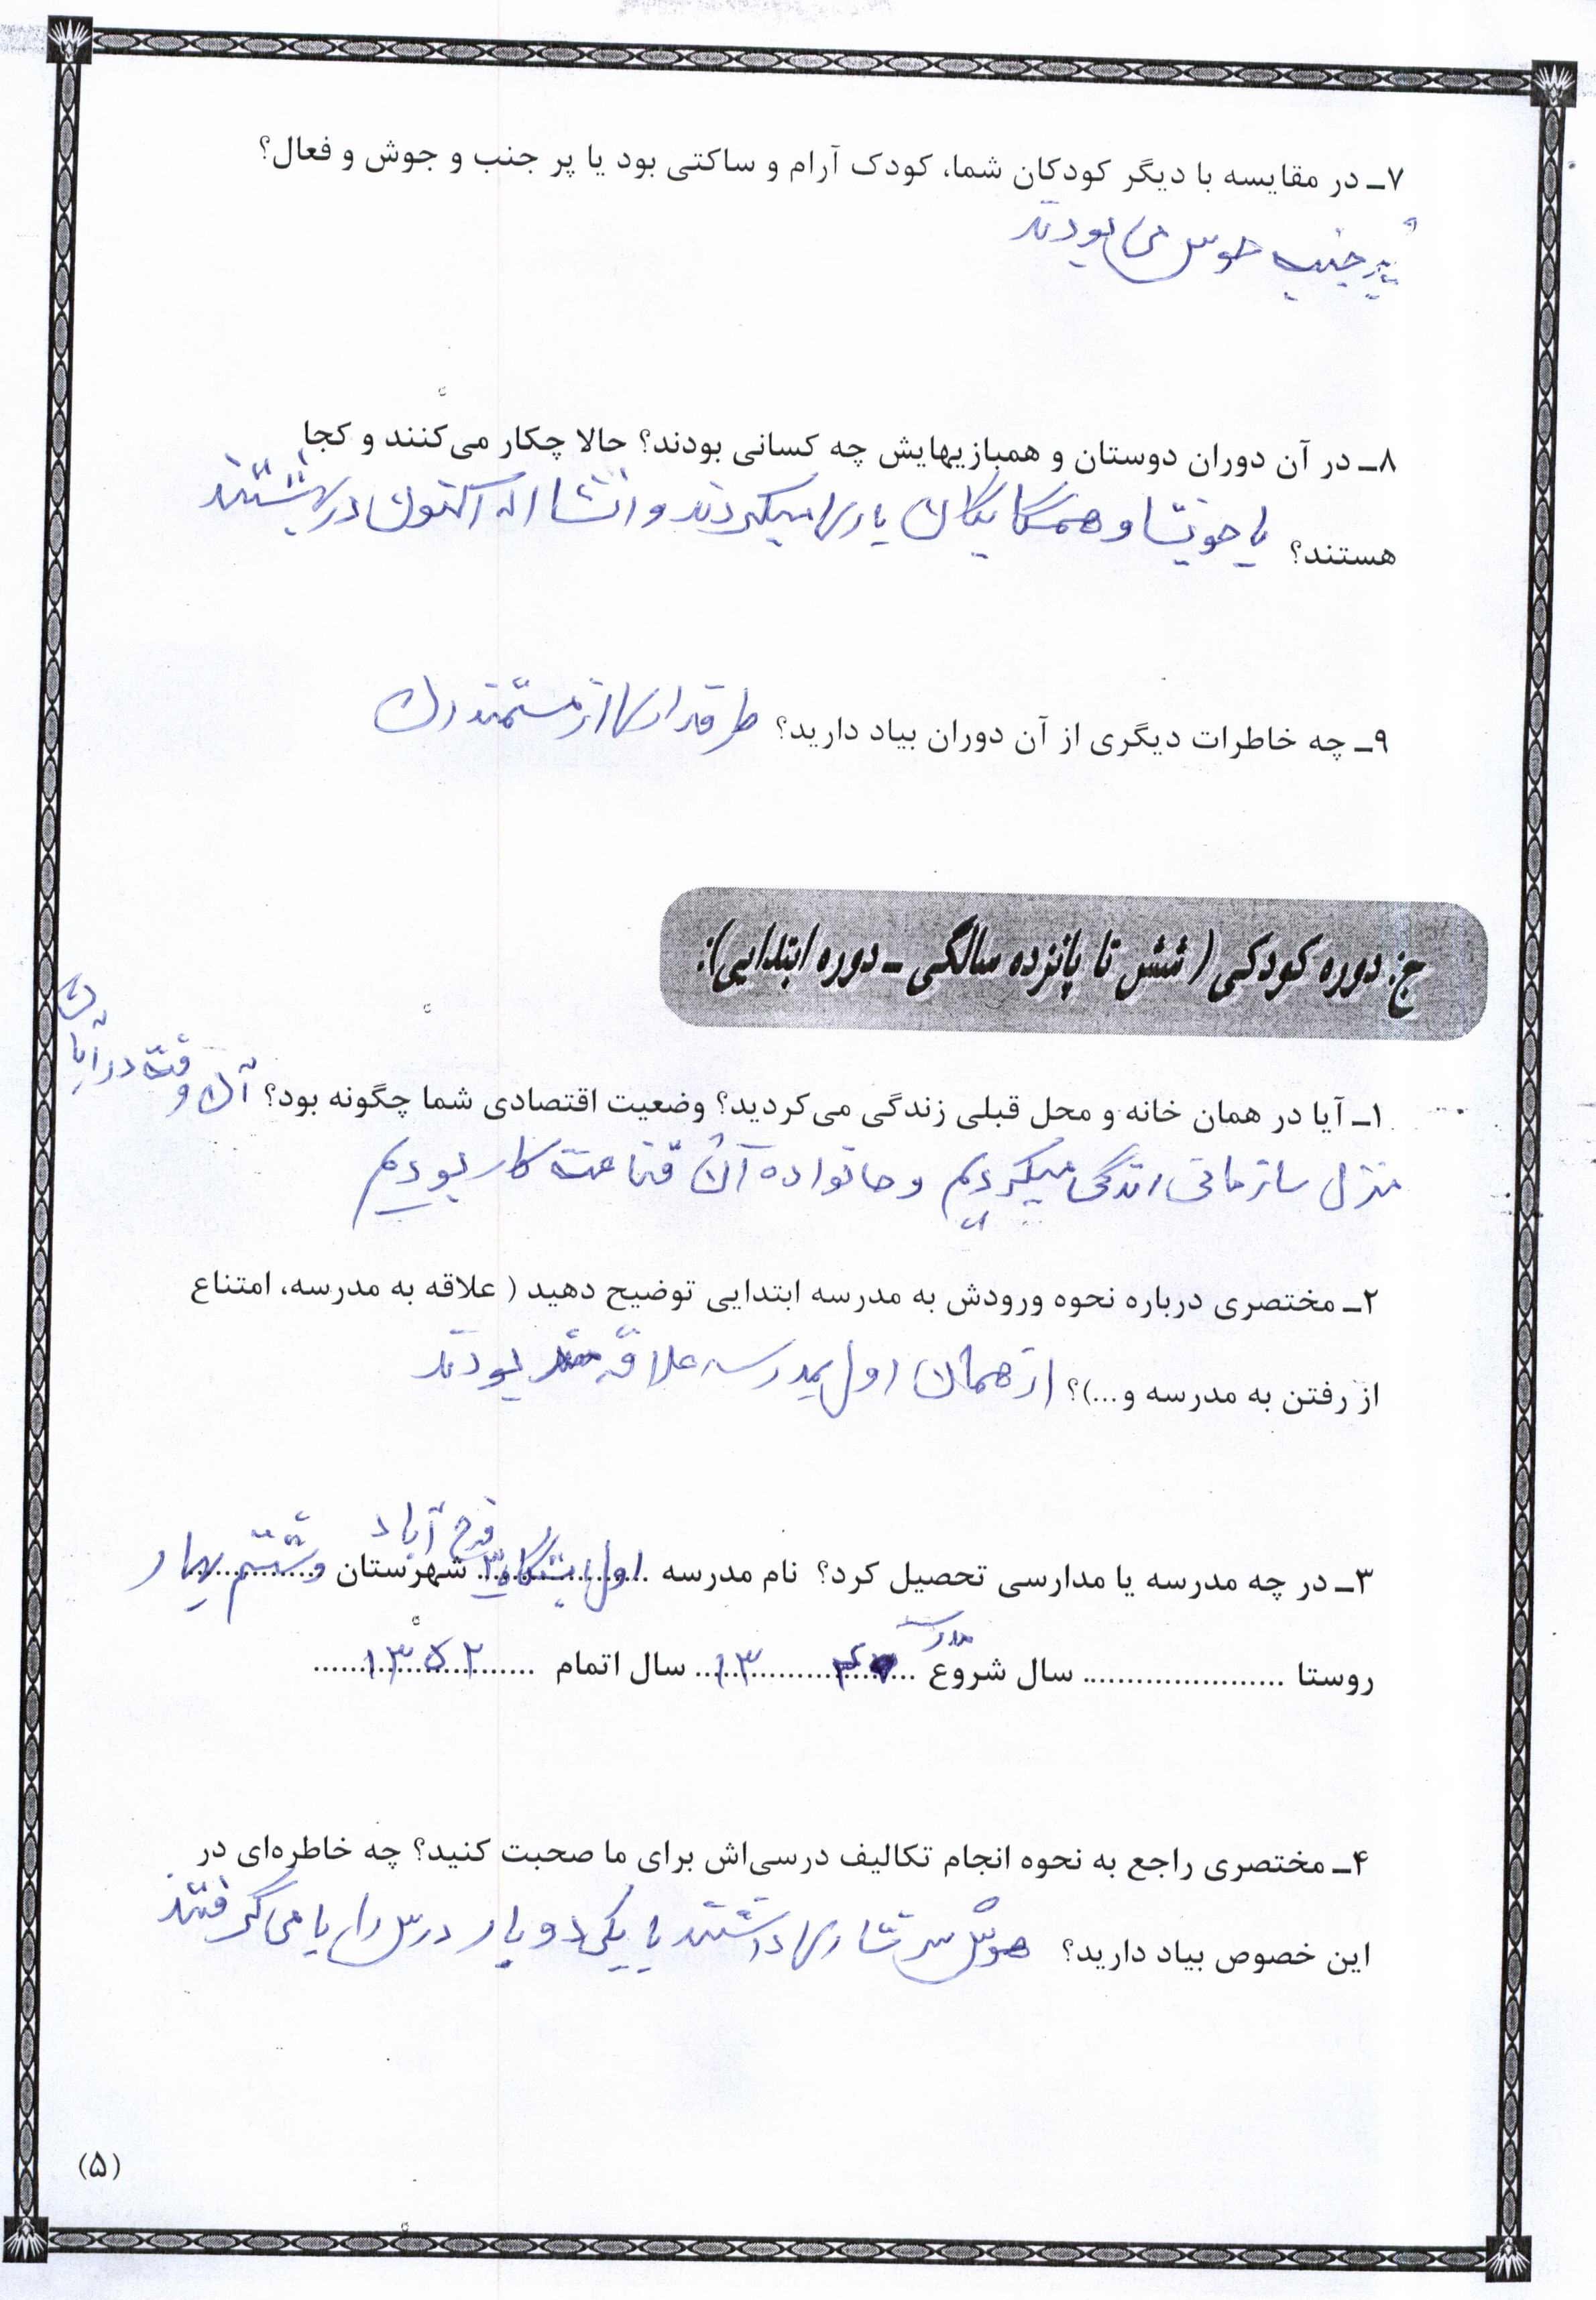 ۷ـ در مقایسه با دیگر کودکان شما، کودک آرام و ساکتی بود یا پر جنب و جوش و فعال؟
پر جنب جوش می بودند
۸ـ در آن دوران دوستان و همبازیهایش چه کسانی بودند؟ حالا چکار می‌کنند و کجا
هستند؟ با خویشا و همسایگان بازی میکردند و انشا اله اکنون در بهشتند
۹ـ چه خاطرات دیگری از آن دوران بیاد دارید؟ طرفداری از مستمندان
ج: دوره کودکی ( شش تا پانزده سالگی ـ دوره ابتدایی):
۱ـ آیا در همان خانه و محل قبلی زندگی می‌کردید؟ وضعیت اقتصادی شما چگونه بود؟ آن وقت در آبادان
منزل سازمانی زندگی میکردیم و خانواده آن قناعت کار بودیم
۲ـ مختصری درباره نحوه ورودش به مدرسه ابتدایی توضیح دهید ( علاقه به مدرسه، امتناع
از رفتن به مدرسه و...)؟ از همان اول بمدرسه علاقه مند بودند
۳ـ در چه مدرسه یا مدارسی تحصیل کرد؟ نام مدرسه اول فرح آباد شهرستان
روستا ...................... سال شروع مدرسه ۱۳ سال اتمام ۱۳۵۲
۴ـ مختصری راجع به نحوه انجام تکالیف درسی‌اش برای ما صحبت کنید؟ چه خاطره‌ای در
این خصوص بیاد دارید؟ هوش سرشاری داشتند با یکی دو بار درس را یا می گرفتند
(۵)